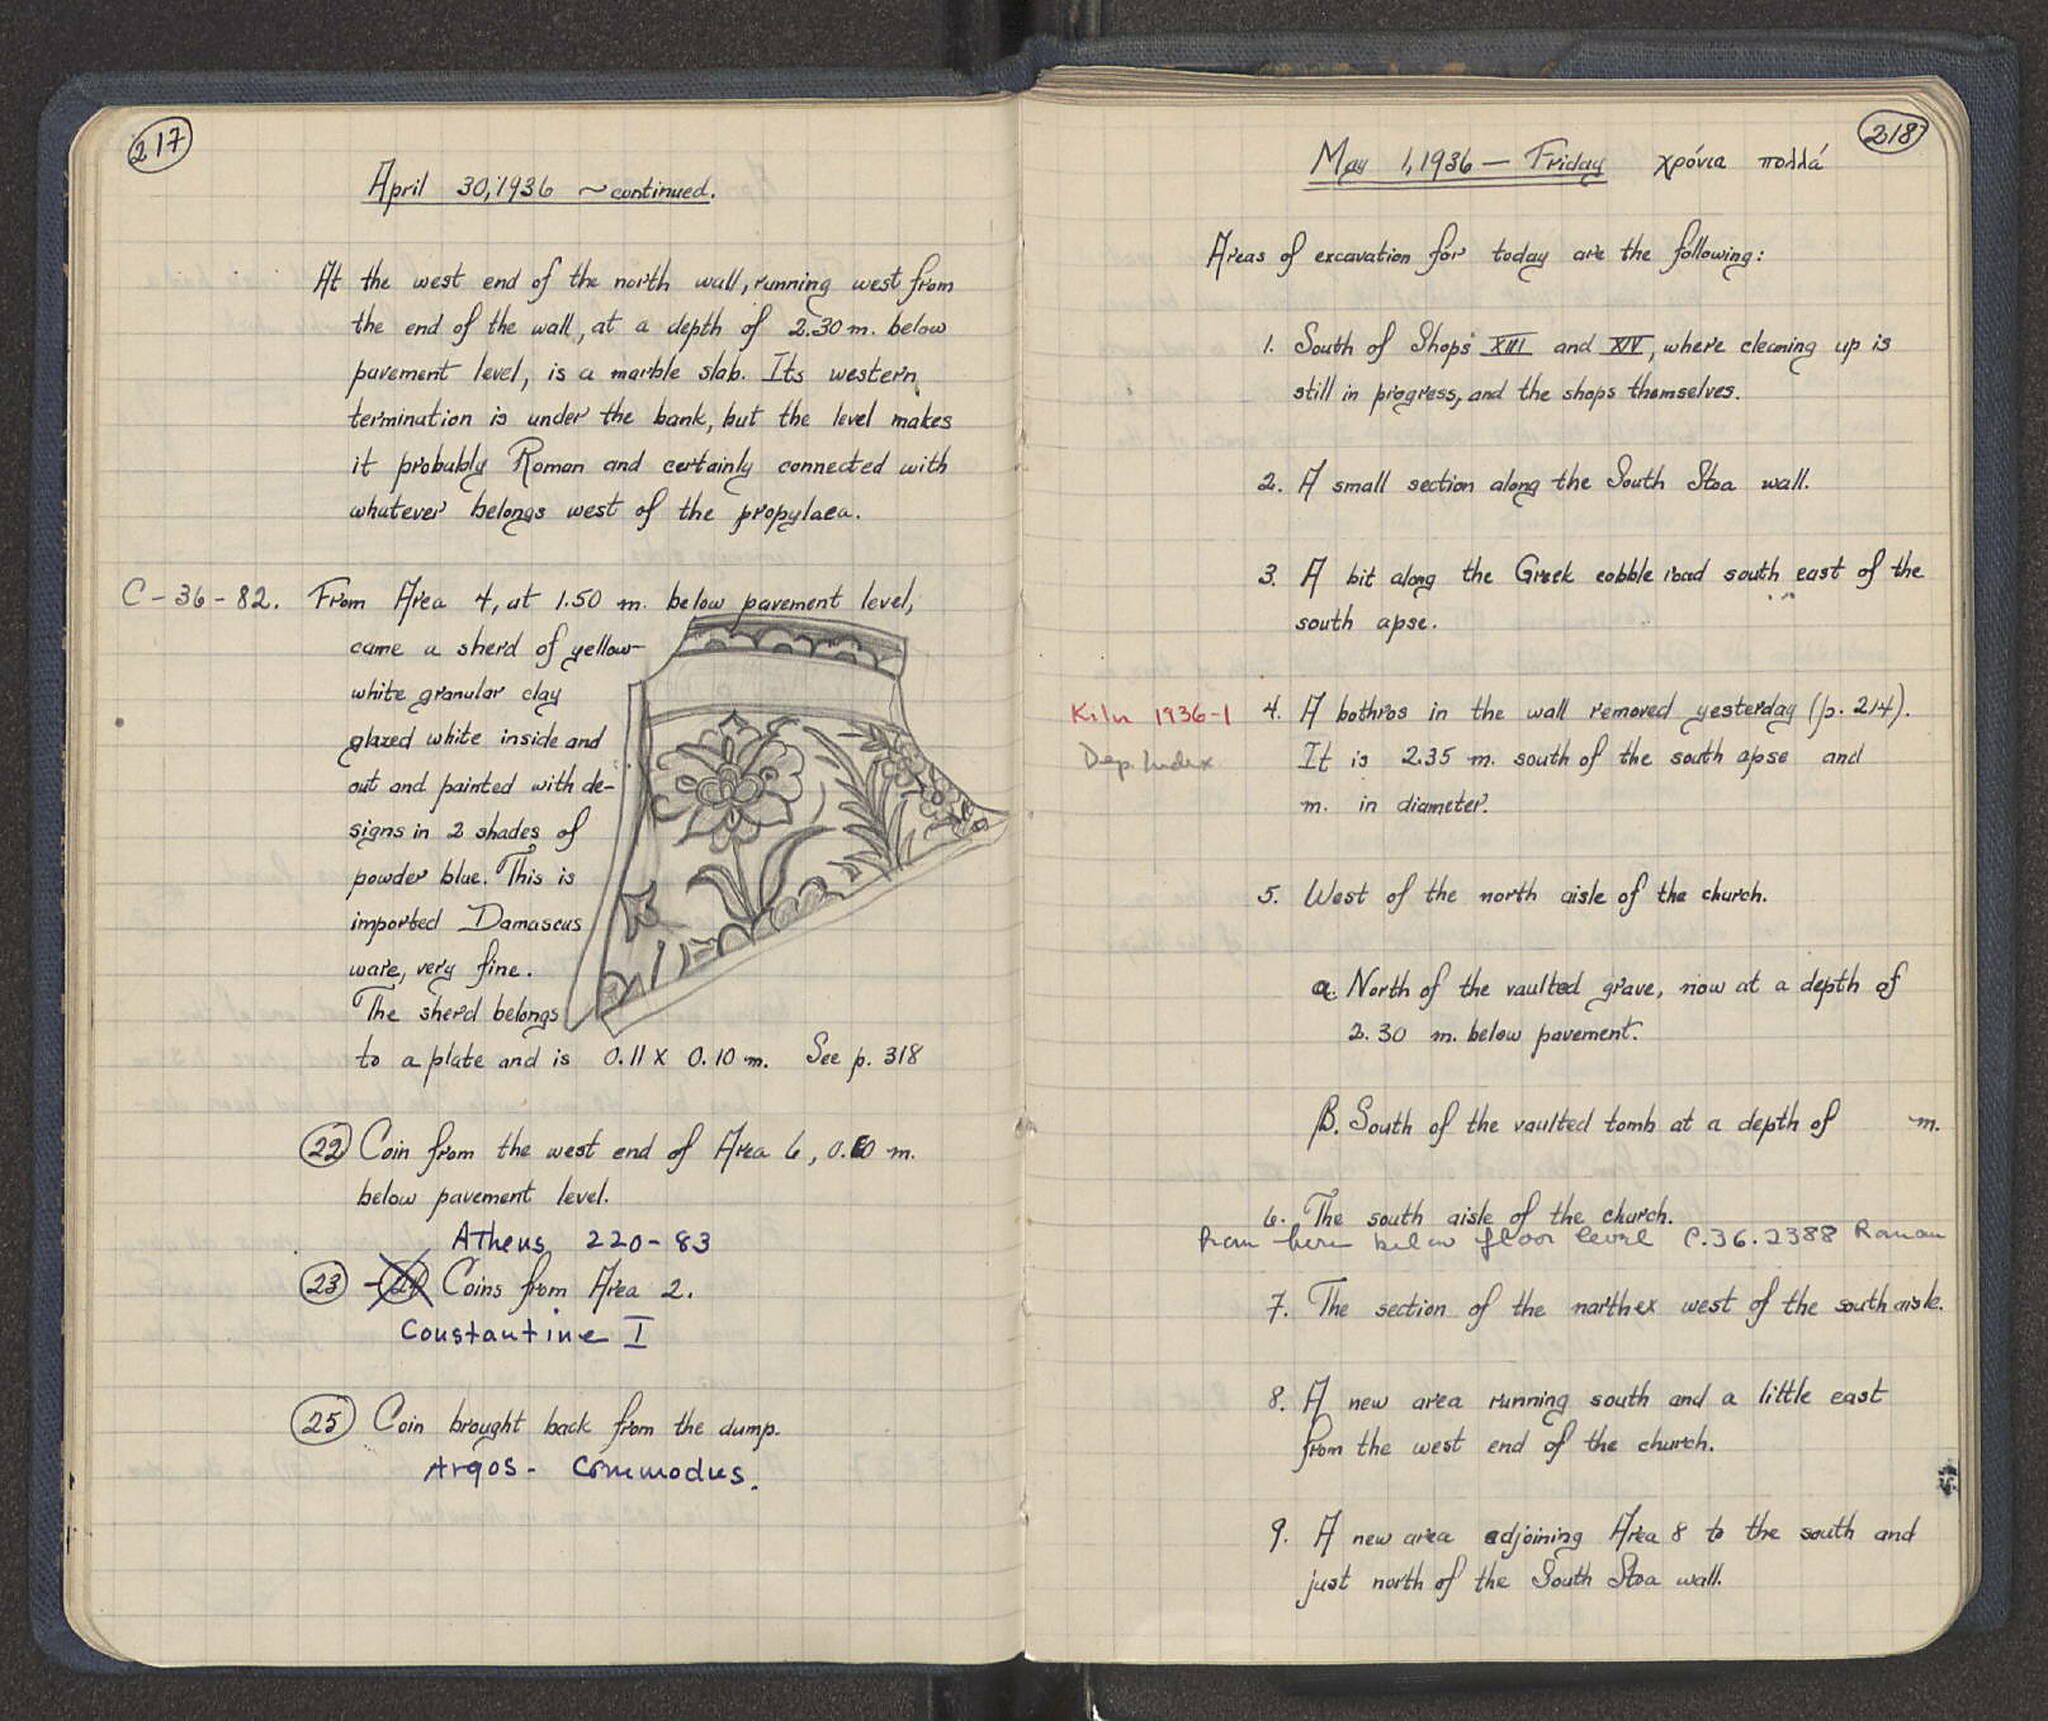 217
April 30, 1936 ~ continued.
At the west end of the north wall, running west from
the end of the wall, at a depth of 2.30 m. below
pavement level, is a marble slab. Its western
termination is under the bank, but the level makes
it probably Roman and certainly connected with
whatever belongs west of the propylaea.
C-36-82. From Area 4, at 1.50 m. below pavement level,
came a sherd of yellow-
white granular clay
glazed white inside and
out and painted with de-
signs in 2 shades of
powder blue. This is
imported Damascus
ware, very fine.
The sherd belongs
to a plate and is 0.11 x 0.10 m. See p. 318
22 Coin from the west end of Area 6, 0.60 m.
below pavement level.
Athens 220-83
23 - 24 Coins from Area 2.
Constantine I
25 Coin brought back from the dump.
Argos - Commodus.
218
May 1, 1936 — Friday χρόνια πολλά
Areas of excavation for today are the following:
1. South of Shops XIII and XIV, where cleaning up is
still in progress, and the shops themselves.
2. A small section along the South Stoa wall.
3. A bit along the Greek cobble road south east of the
south apse.
Kiln 1936-1 4. A bothros in the wall removed yesterday (p. 214).
Dep. Index It is 2.35 m. south of the south apse and
m. in diameter.
5. West of the north aisle of the church.
a. North of the vaulted grave, now at a depth of
2.30 m. below pavement.
β. South of the vaulted tomb at a depth of m.
6. The south aisle of the church.
From here below floor level C.36.2388 Roman
7. The section of the narthex west of the south aisle.
8. A new area running south and a little east
from the west end of the church.
9. A new area adjoining Area 8 to the south and
just north of the South Stoa wall.